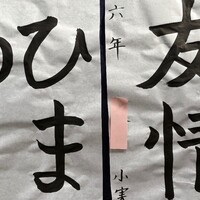 友情
六年
小実
ひま